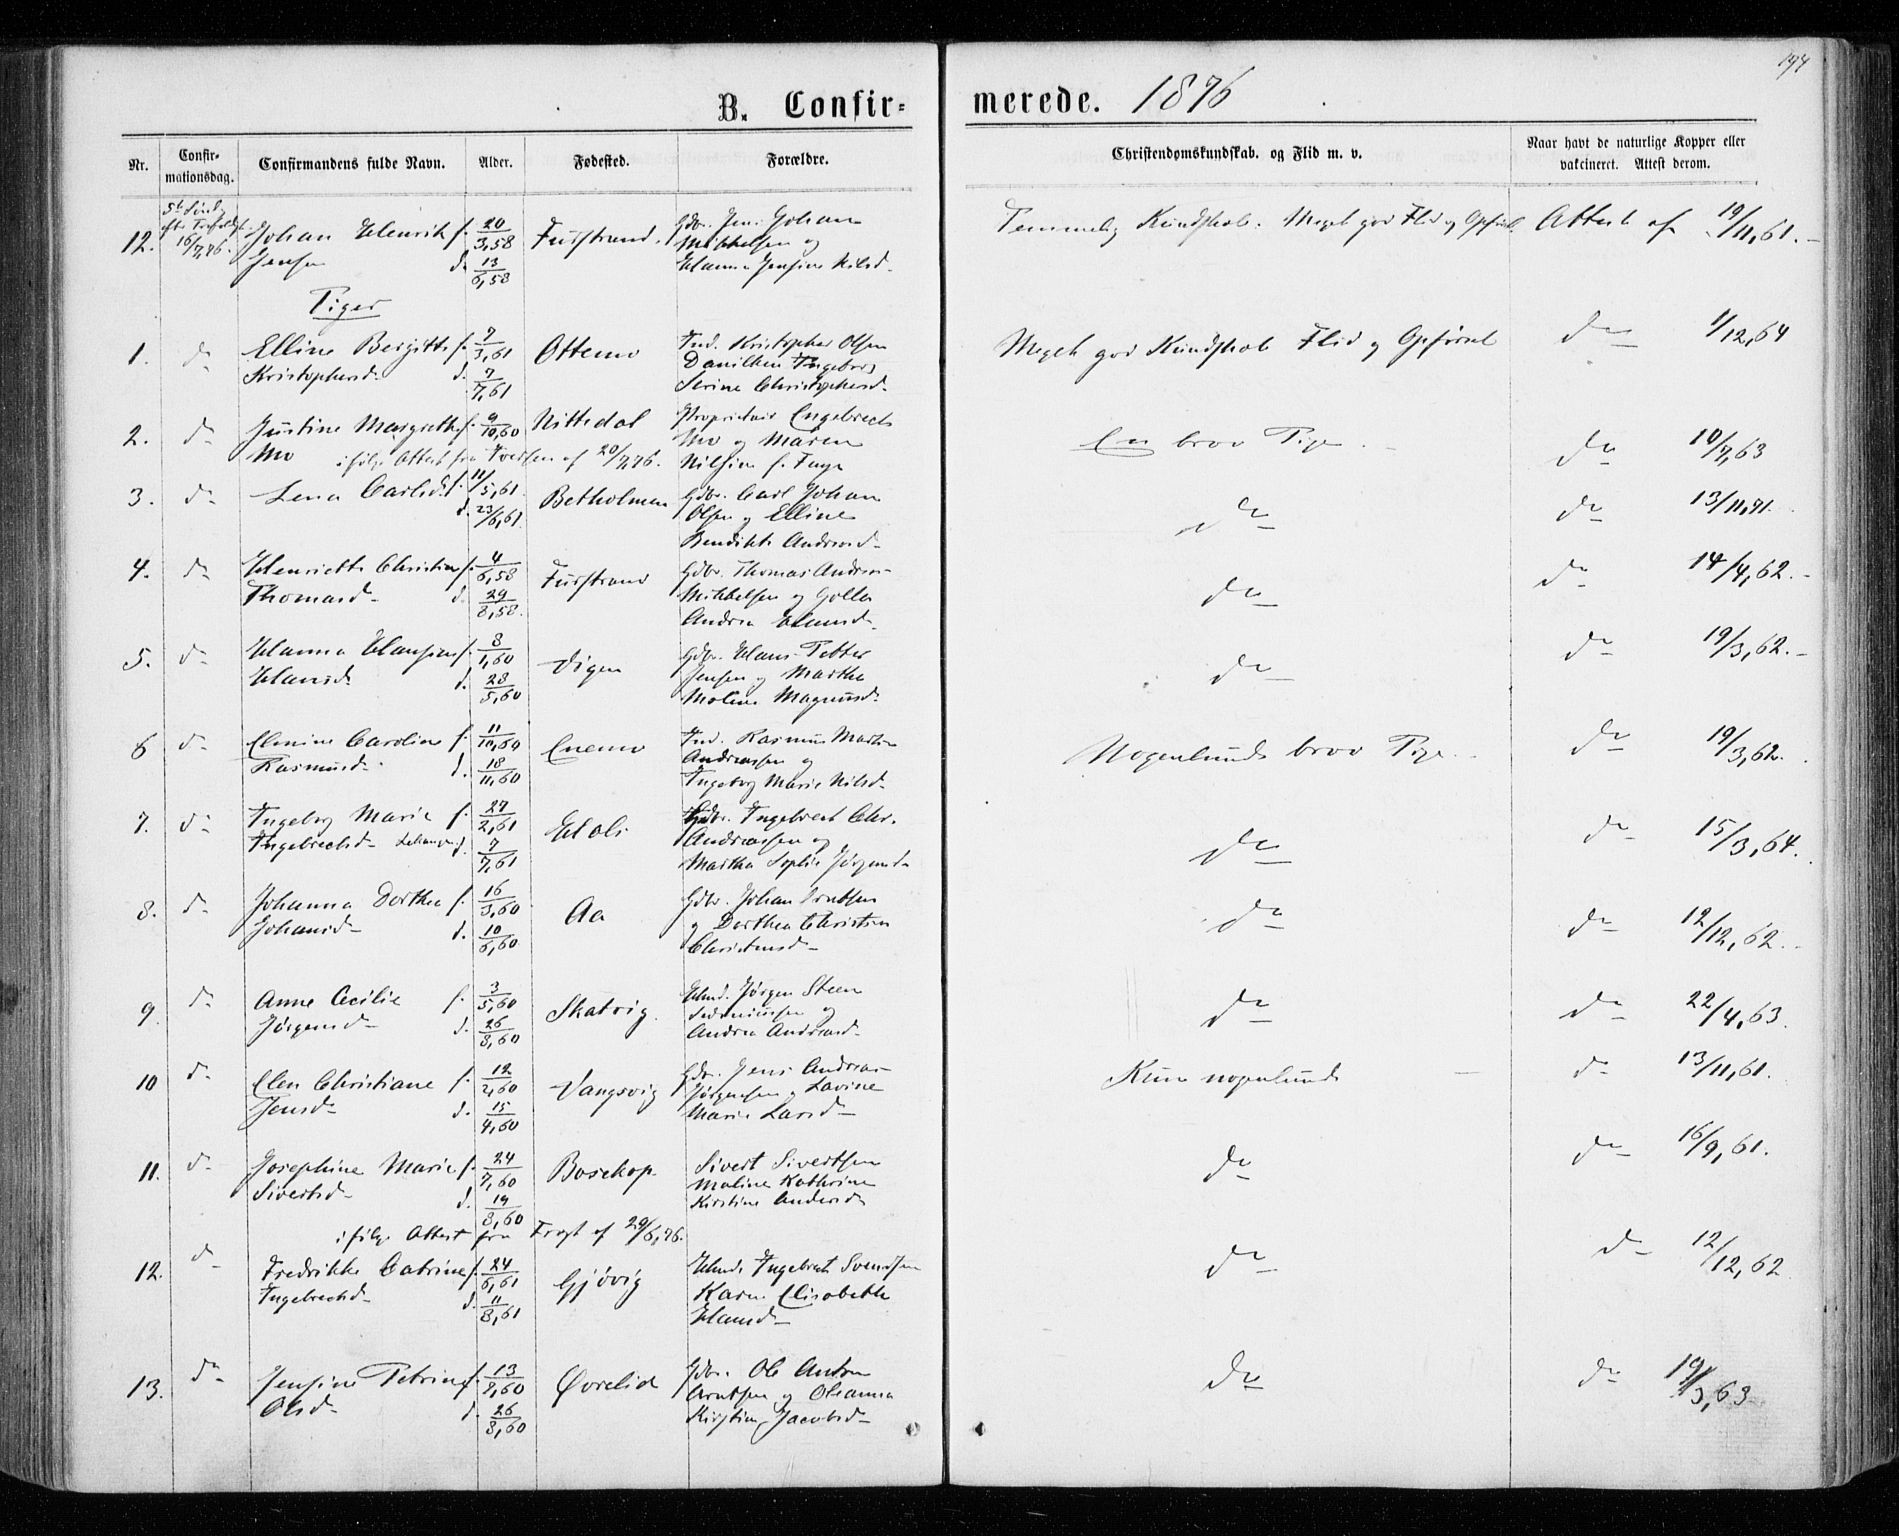 194
B. Confir- merede. 1876
Nr. Confir-mationsdag. Confirmandens fulde Navn. Alder. Fødested. Forældre. Christendomskundskab. og Flid m. v. Naar havt de naturlige Kopper eller vakcineret. Attest derom.
12. 16/7,76. Johan Henrik f. 20/3,58 Gbr. Jens Johan Meget god Flid og Attest af 19/11,61.
Jensen d. 13/6,58 Mikkelsen og
Hanna Jensine Nilsd.
Piger
1. do Elline Bergitte f. 7/3,61 Ottemo Ind. Kristopher Olsen Meget god Kundskab Flid og Opførsel do 1/12,64
Kristophersd. d. 7/7,61 Ingebor
Serine Christophersd.
2. do Justine Margrethe f. 9/10,60 Nittedal Proprietair Engebrecht En brav Pige. do 10/7,63
Mo Mo og Maren
ifølge Attest fra af 20/7,76. Nilsine f.
3. do Lena Carlsd. f. 11/5,61 Betholmen Gbr. Carl Johan do do 13/11,71.
d. 23/6,61 Olsen og Elline
Bendikte Andreasd.
4. do Henriette Christine f. 4/6,58 Gbr. Thomas Andreas do do 14/4,62.
Thomasd. d. 29/8,58. Mikkelsen og
Andrea Hansd.
5. do Hanna Hansine f. 8/1,60 Vigen Gbr. Hans Petter do do 19/3,62.
Hansd. d. 28/5,60 Jensen og Martha
Moline Magnusd.
6 do Caroline f. 11/10,60 Enemo Ind. Rasmus Martin Nogenlunde brav Pige. do 19/3,62.
Rasmusd. d. 18/11,60 Andreassen og
Ingeborg Marie Nilsd.
7. do Ingeborg Marie f. 27/2,61 Gbr. Ingebrect Chr. do do 15/3,64.
Ingebrechtsd. d. 7/7,61 Andreassen og
Martha Sophie Jørgensd.
8. do Johanna Dorthea f. 16/3,60 Aa Gbr. Johan Arntsen do do 12/12,62.
Johansd. d. 10/6,60 og Dorthea Christine
Christensd.
9. do Anne Cecilie f. 3/5,60 Skatvig. Jørgen Steen do do 22/4,63.
Jørgensd. d. 26/8,60 og
Andrea Andreasd.
10 do Elen Christiane f. 12/2,60 Vangsvig Gbr. Jens Andreas Kun nogenlunde do 13/11,61.
Jensd. d. 15/4,60 Jørgensen og Lavine
Marie Larsd.
11. do Josephine Marie f. 24/7,60 Bosekop Sivert Sivertsen do do 16/9,61.
Sivertsd. d. 19/8,60 Maline Kathrine
Kirstine Andersd.
ifølge Attest fra af 29/6,76.
12. do Fredrikke Catrine f. 24/6,61 Gjøvig Ingebrect Svendsen do do 12/12,62
Ingebrechtsd. d. 11/8,61 Karen Elisabeth
Hansd.
13. do Jensine Petrine f. 13/2,60 Øvrelid Gbr. Ole Andreas do do 19/3,63
Olsd. d. 26/8,60 Arntsen og Oleanna
Kirstine Jacobsd.